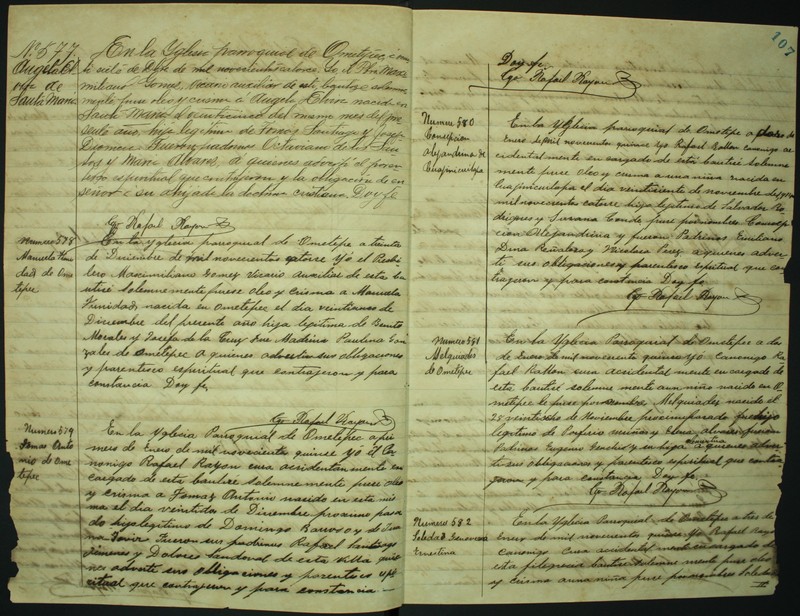 No. 577.
Angela El
vira de
Santa Maria
En la Yglesia parroquial de Ometepec, á
de mil novecientos catorce Yo el Pbro Maxi
miliano Gomez Vicario auxiliar de esta bauticé solemne
mente puse oleo y crisma a Angela Elvira nacida en
Santa Maria el veinticinco del mismo mes del pre
sente año, hija legitima de
fueron padrinos Octaviano de la
y Maria Alvarez, a quienes advertí el paren
tesco espiritual que contrajeron y la obligación de en
señar á su ahijada la doctrina cristiana. Doy fe
Cgo Rafael Rayon
Numero 578
Manuela Trini
dad de Ome
tepec
En la Yglesia parroquial de Ometepec a treinta
de Diciembre de mil novecientos catorce Yo el Presbi
tero Maximiliano Gomez Vicario auxiliar de esta ba
uticé solemnemente puse oleo y crisma a Manuela
Trinidad, nacida en Ometepec el dia veintiunos de
Diciembre del presente año hija legitima de Benito
Morales y Josefa de la Cruz Fue Madrina Paulina Gon
zales de Ometepec A quienes advertí sus obligaciones
y parentesco espiritual que contrajeron y para
constancia Doy fe.
Cgo Rafael Rayon
Numero 579
Tomas Anto
nio de Ome
tepec
En la Yglesia Parroquial de Ometepec a pri
mero de Enero de mil novecientos quince Yo el Ca
nonigo Rafael Rayon cura accidentalmente en
cargado de esta bauticé solemnemente puse oleo
y crisma a Tomas Antonio nacido en esta mis
ma el dia veintidos de Diciembre proximo pasa
do hijo legitimo de Domingo Barroso y de
Fueron sus padrinos Rafael Santiago
Jimenes y Dolores Sandoval de esta villa quie
nes advertí sus obligaciones y parentesco espi
ritual que contrajeron y para constancia
107
Doy fe.
Cgo Rafael Rayon
Numero 580
Concepcion
Alejandrina de
Cuajinicuilapa
En la Yglesia parroquial de Ometepec a
Enero de mil novecientos quince Yo Rafael Rallon canonigo ac
cidental mente en cargado de esta bauticé solemne
mente puse oleo y crisma a una niña nacida en
Cuajinicuilapa el dia veintisiete de noviembre de
mil novecientos catorce hija legitima de Salvador Ro
driguez y Susana Conde puse por nombre Concep
cion Alejandrina y fueron Padrinos Emiliano
Dina Peñaloza y Nicolasa Perez a quienes adver
tí sus obligaciones y parentesco espiritual que con
trajeron y para constancia Doy fe.
Cgo Rafael Rayon
Numero 581
Melquiades
de Ometepec
En la Yglesia Parroquial de Ometepec a dos
de Enero de mil novecientos quince Yo Canonigo Ra
fael Rallon cura accidental mente en cargado de
esta bauticé solemne mente a un niño nacido en O
metepec le puse por nombre Melquiades nacido el
28 veintiocho de Noviembre proximo pasado hijo
legitimo de Porfirio Muñoz y Elena Alvarez fueron
Padrinos Eugenio Sanches y su hija a quienes adver
tí sus obligaciones y parentesco espiritual que contra
jeron y para constancia Doy fe.
Cgo Rafael Rayon
Numero 582
Soledad Genoveva
Ernestina
En la Yglesia Parroquial de Ometepec a tres de
Enero de mil novecientos quince Yo Rafael Rayon
Canonigo Cura accidental mente encargado de
esta feligrecia bauticé solemne mente puse oleo
y crisma a una niña puse por nombre Soledad